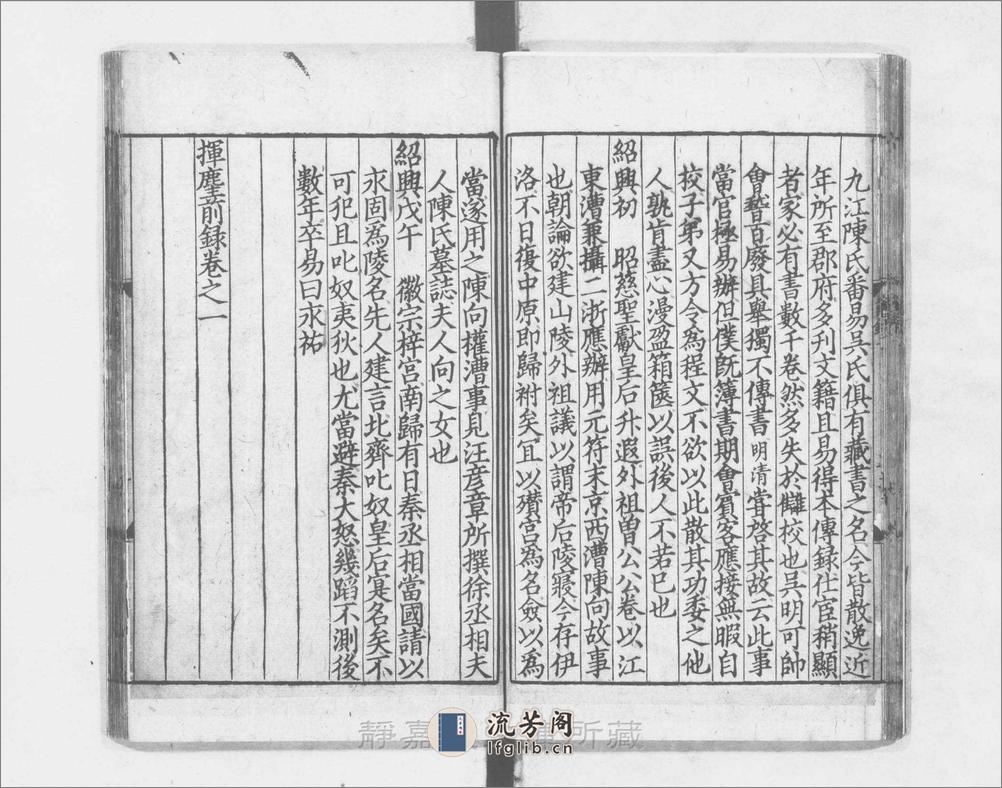 九江陳氏番易吳氏俱有藏書之名今皆散逸近
年所至郡府多刊文籍且易得本傳録仕宦稍顯
者家必有書數千卷然多失於讎校也吳明可帥
會稽百廢具舉獨不傳書明清嘗啓其故云此事
當官極易辦但僕旣簿書期會賓客應接無暇自
校子弟又方令爲程文不欲以此散其功委之他
人孰肯盡心漫盈箱篋以誤後人不若已也
紹興初 昭慈聖獻皇后升遐外祖曽公公卷以江
東漕兼攝二浙應辦用元符末京西漕陳向故事
也朝論欲建山陵外祖議以謂帝后陵寢今存伊
洛不日復中原即歸祔矣冝以攢宮爲名僉以爲
當遂用之陳向權漕事見汪彦章所撰徐丞相夫
人陳氏墓誌夫人向之女也
紹興戊午 徽宗梓宮南歸有日秦丞相當國請以
永固爲陵名先人建言北齊叱奴皇后寔名矣不
可犯且叱奴夷狄也尤當避秦大怒幾蹈不測後
數年卒易曰永祐
揮麈前録卷之一
靜嘉 所藏
流芳阁
lfglib.cn